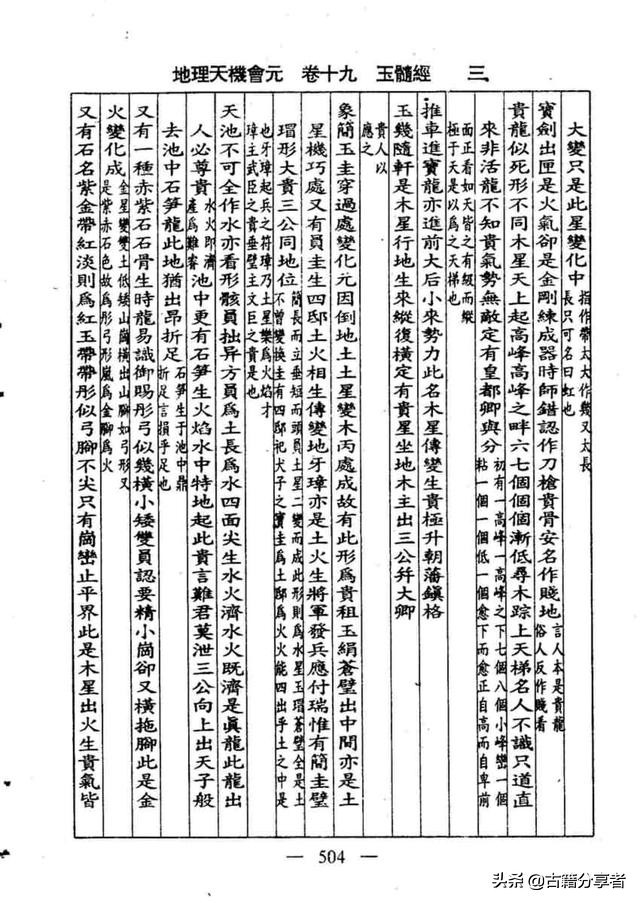 地理天機會元　卷十九　玉髓經　三
大變只是此星變化中指作帶太大作幾又太長長只可名曰虹也
寶劍出匣是火氣卻是金剛練成器時師錯認作刀槍貴骨安名作賤地言人本是貴龍俗人反作賤看
貴龍似死形不同木星天上起高峰高峰之畔六七個個個漸低尋木踪上天梯名人不識只道直
來非活龍不知貴氣勢無敵定有皇都卿與分初有一高峰一高峰之下七個八個小峰巒一個粘一個一個低一個愈下而愈正自高而自卑前
面正看如天皆之有級而縱極于天是以爲之天梯也
推車進寶龍亦進前大后小來勢力此名木星傳變生貴極升朝藩鎮格
玉幾隨軒是木星行地生來縱復橫定有貴星坐地木主出三公幷大卿
貴人以應之
象簡玉圭穿過處變化元因倒地土土星變木丙處成故有此形爲貴租玉絹蒼璧出中間亦是土
星機巧處又有員圭生四邸土火相生傳變地牙璋亦是土火生將軍發兵應付瑞惟有簡圭璧
瑁形大貴三公同地位簡長而立垂短而頭員土星二變而成此形則爲水星玉環蒼璧全是土不曾變換圭有四邸祀犬子之寶圭爲土邸爲火火能四出乎土之中是
也牙璋起兵之符璋乃土星樂爲火焰才璋主武臣之貴垂璧主文巨之貴是也
天池不可全作水亦看形骸員拙异方員爲土長爲水四面尖生水火濟水火既濟是眞龍此龍出
人必尊貴水火即濟產爲難睿池中更有石笋生火焰水中特地起此貴言難君莫泄三公向上出天子般
去池中石笋龍此地猶出昂折足石笋生于池中鼎折足言損乎足也
又有一種赤紫石石骨生時龍易識御賜彤弓似幾橫小矮雙員認要精小崗卻又橫拖腳此是金
火變化成金星變雙土低矮山崗橫出山腳如弓形又是紫赤石色故爲彤弓形嵐爲金腳爲火
又有石名紫金帶紅淡則爲紅玉帶帶彤似弓腳不尖只有崗巒止平界此是木星出火生貴氣皆
— 504 —
头条@古籍分享者